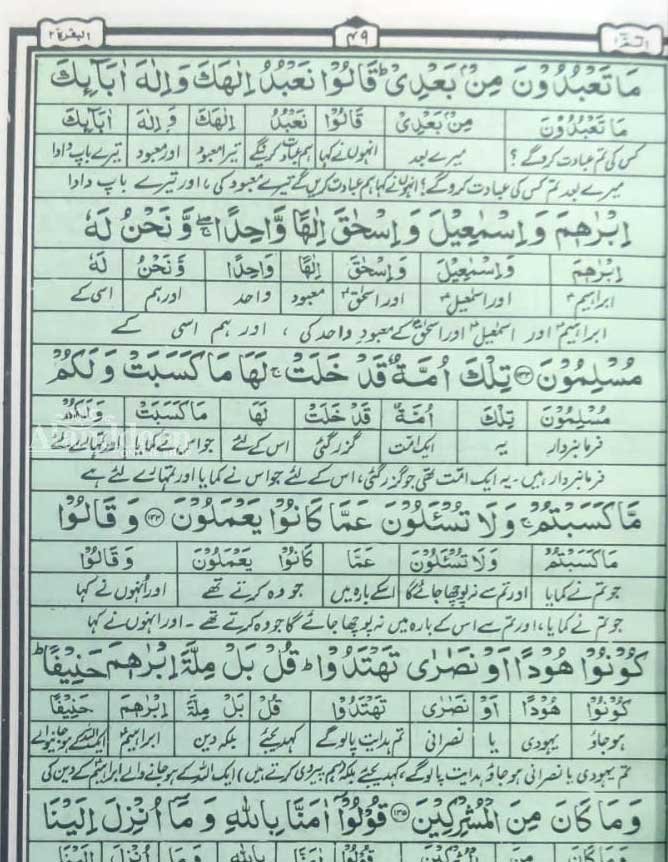 البقرة ۲ ۴۹ الٓمّٓ ۱
مَا تَعْبُدُوْنَ مِنْۢ بَعْدِیْ ؕ قَالُوْا نَعْبُدُ اِلٰهَكَ وَ اِلٰهَ اٰبَآىِٕكَ
مَا تَعْبُدُوْنَ مِنْۢ بَعْدِیْ قَالُوْا نَعْبُدُ اِلٰهَكَ وَ اِلٰهَ اٰبَآىِٕكَ
کس کی تم عبادت کرو گے؟ میرے بعد انہوں نے کہا ہم عبادت کرینگے تیرا معبود اور معبود تیرے باپ دادا
میرے بعد تم کس کی عبادت کرو گے؟ انہوں نے کہا ہم عبادت کریں گے تیرے معبود کی، اور تیرے باپ دادا
اِبْرٰهٖمَ وَ اِسْمٰعِیْلَ وَ اِسْحٰقَ اِلٰهًا وَّاحِدًا ۖۚ وَّ نَحْنُ لَهٗ
اِبْرٰهٖمَ وَ اِسْمٰعِیْلَ وَ اِسْحٰقَ اِلٰهًا وَاحِدًا وَّ نَحْنُ لَهٗ
ابراہیمؑ اور اسمٰعیلؑ اور اسحٰقؑ معبود واحد اور ہم اسی کے
ابراہیمؑ اور اسمٰعیلؑ اور اسحٰقؑ کے معبود واحد کی، اور ہم اسی کے
مُسْلِمُوْنَ ۝۱۳۳ تِلْكَ اُمَّةٌ قَدْ خَلَتْ ۚ لَهَا مَا كَسَبَتْ وَ لَكُمْ
مُسْلِمُوْنَ تِلْكَ اُمَّةٌ قَدْ خَلَتْ لَهَا مَا كَسَبَتْ وَ لَكُمْ
فرمانبردار یہ ایک امّت گزر گئی اس کے لئے جو اس نے کمایا اور تمہارے لئے
فرمانبردار ہیں۔ یہ ایک امّت تھی جو گزر گئی، اس کے لئے جو اس نے کمایا اور تمہارے لئے ہے
مَّا كَسَبْتُمْ ۚ وَ لَا تُسْـَٔلُوْنَ عَمَّا كَانُوْا یَعْمَلُوْنَ ۝۱۳۴ وَ قَالُوْا
مَا كَسَبْتُمْ وَ لَا تُسْـَٔلُوْنَ عَمَّا كَانُوْا یَعْمَلُوْنَ وَ قَالُوْا
جو تم نے کمایا اور تم سے نہ پوچھا جائے گا اسکے بارہ میں جو وہ کرتے تھے اور اُنہوں نے کہا
جو تم نے کمایا، اور تم سے اس کے بارہ میں نہ پوچھا جائے گا جو وہ کرتے تھے ۔ اور انہوں نے کہا
كُوْنُوْا هُوْدًا اَوْ نَصٰرٰی تَهْتَدُوْا ؕ قُلْ بَلْ مِلَّةَ اِبْرٰهٖمَ حَنِیْفًا ؕ
كُوْنُوْا هُوْدًا اَوْ نَصٰرٰی تَهْتَدُوْا قُلْ بَلْ مِلَّةَ اِبْرٰهٖمَ حَنِیْفًا
ہو جاؤ یہودی یا نصرانی تم ہدایت پالو گے کہدیجئے بلکہ دین ابراہیمؑ ایک اللہ کے ہو جانیوالے
تم یہودی یا نصرانی ہو جاؤ ہدایت پالو گے، کہدیجئے بلکہ (ہم پیروی کرتے ہیں) ایک اللہ کے ہو جانے والے ابراہیمؑ کے دین کی
وَ مَا كَانَ مِنَ الْمُشْرِكِیْنَ ۝۱۳۵ قُوْلُوْۤا اٰمَنَّا بِاللّٰهِ وَ مَاۤ اُنْزِلَ اِلَیْنَا